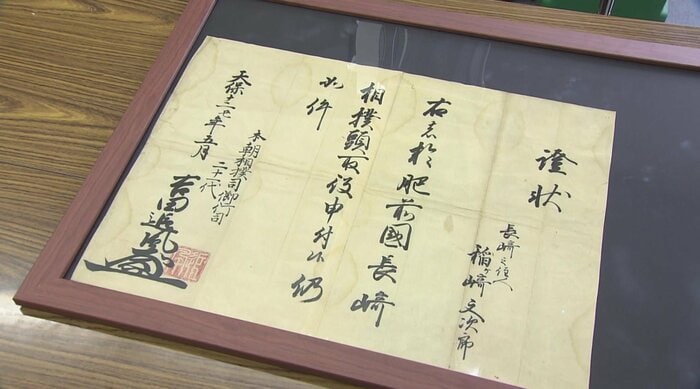 證状
長崎之住人
稲ヶ崎文次郎
右者於肥前國長崎
相撲頭取役申付候仍
如件
本朝相撲司御行司
二十一代
天保十二丑年五月
吉田追風